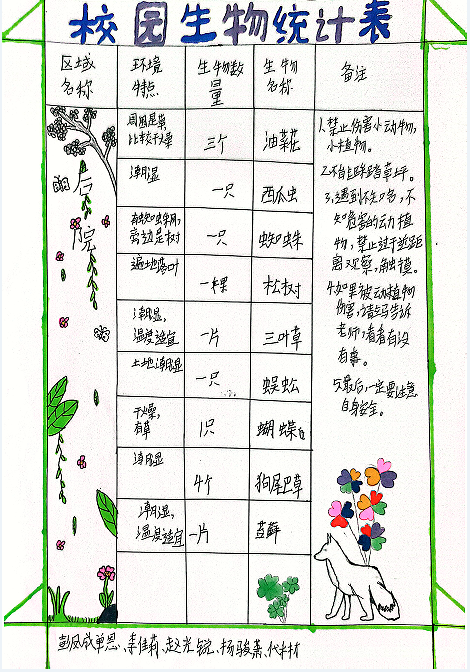 校园生物统计表
区域名称
环境特点
生物数量
生物名称
备注
后院
周围是草,
比较干燥
三个
油菜花
潮湿
一只
西瓜虫
有蜘蛛网,
旁边是树
一只
蜘蛛
遍地落叶
一棵
松树
潮湿,
温度适宜
一片
三叶草
土地潮湿
一只
蜈蚣
干燥,
有草
1只
蝴蝶
潮湿
4个
狗尾巴草
潮湿,
温度适宜
一片
苔藓
1.禁止伤害小动物,
小植物。
2.不能踩踏草坪。
3.遇到不知
危害的动植
物,禁止过于近距
离观察,触摸。
4.如果被动植物
伤害,请立马告诉
老师,看看有没
有事。
5.最后,一定要注意
自身安全。
李佳莉、赵光锐、杨骏